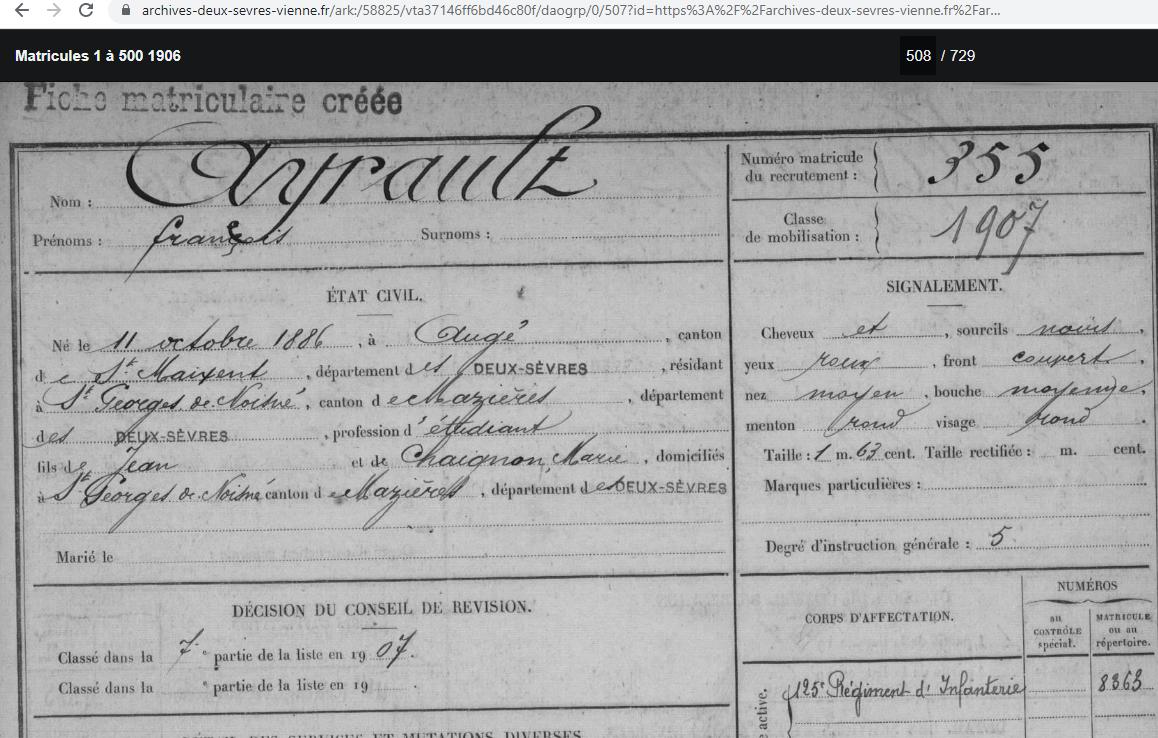 archives-deux-sevres-vienne.fr/ark:/58825/vta37146ff6bd46c80f/daogrp/0/507?id=https%3A%2F%2Farchives-deux-sevres-vienne.fr%2Far...
Matricules 1 à 500 1906
508 / 729
Fiche matriculaire créée
Nom : Ayrault
Prénoms : françois Surnoms :
Numéro matricule du recrutement : 355
Classe de mobilisation : 1907
ÉTAT CIVIL.
Né le 11 octobre 1886, à Augé, canton
de St Maixent, département des DEUX-SÈVRES, résidant
à St Georges de Noisné, canton de Mazières, département
des DEUX-SÈVRES, profession d'étudiant
fils de Jean et de Chaignon, Marie, domiciliés
à St Georges de Noisné canton de Mazières, département des DEUX-SÈVRES
Marié le
SIGNALEMENT.
Cheveux et, sourcils noirs,
yeux roux, front couvert,
nez moyen, bouche moyenne,
menton rond visage rond.
Taille : 1 m. 63 cent. Taille rectifiée : m. cent.
Marques particulières :
Degré d'instruction générale : 5
DÉCISION DU CONSEIL DE REVISION.
Classé dans la 7e partie de la liste en 1907.
Classé dans la e partie de la liste en 19 .
CORPS D'AFFECTATION.
NUMÉROS
au CONTRÔLE spécial.
MATRICULE ou au répertoire.
active.
125e Régiment d'Infanterie 8363
DÉTAIL DES SERVICES ET MUTATIONS DIVERSES